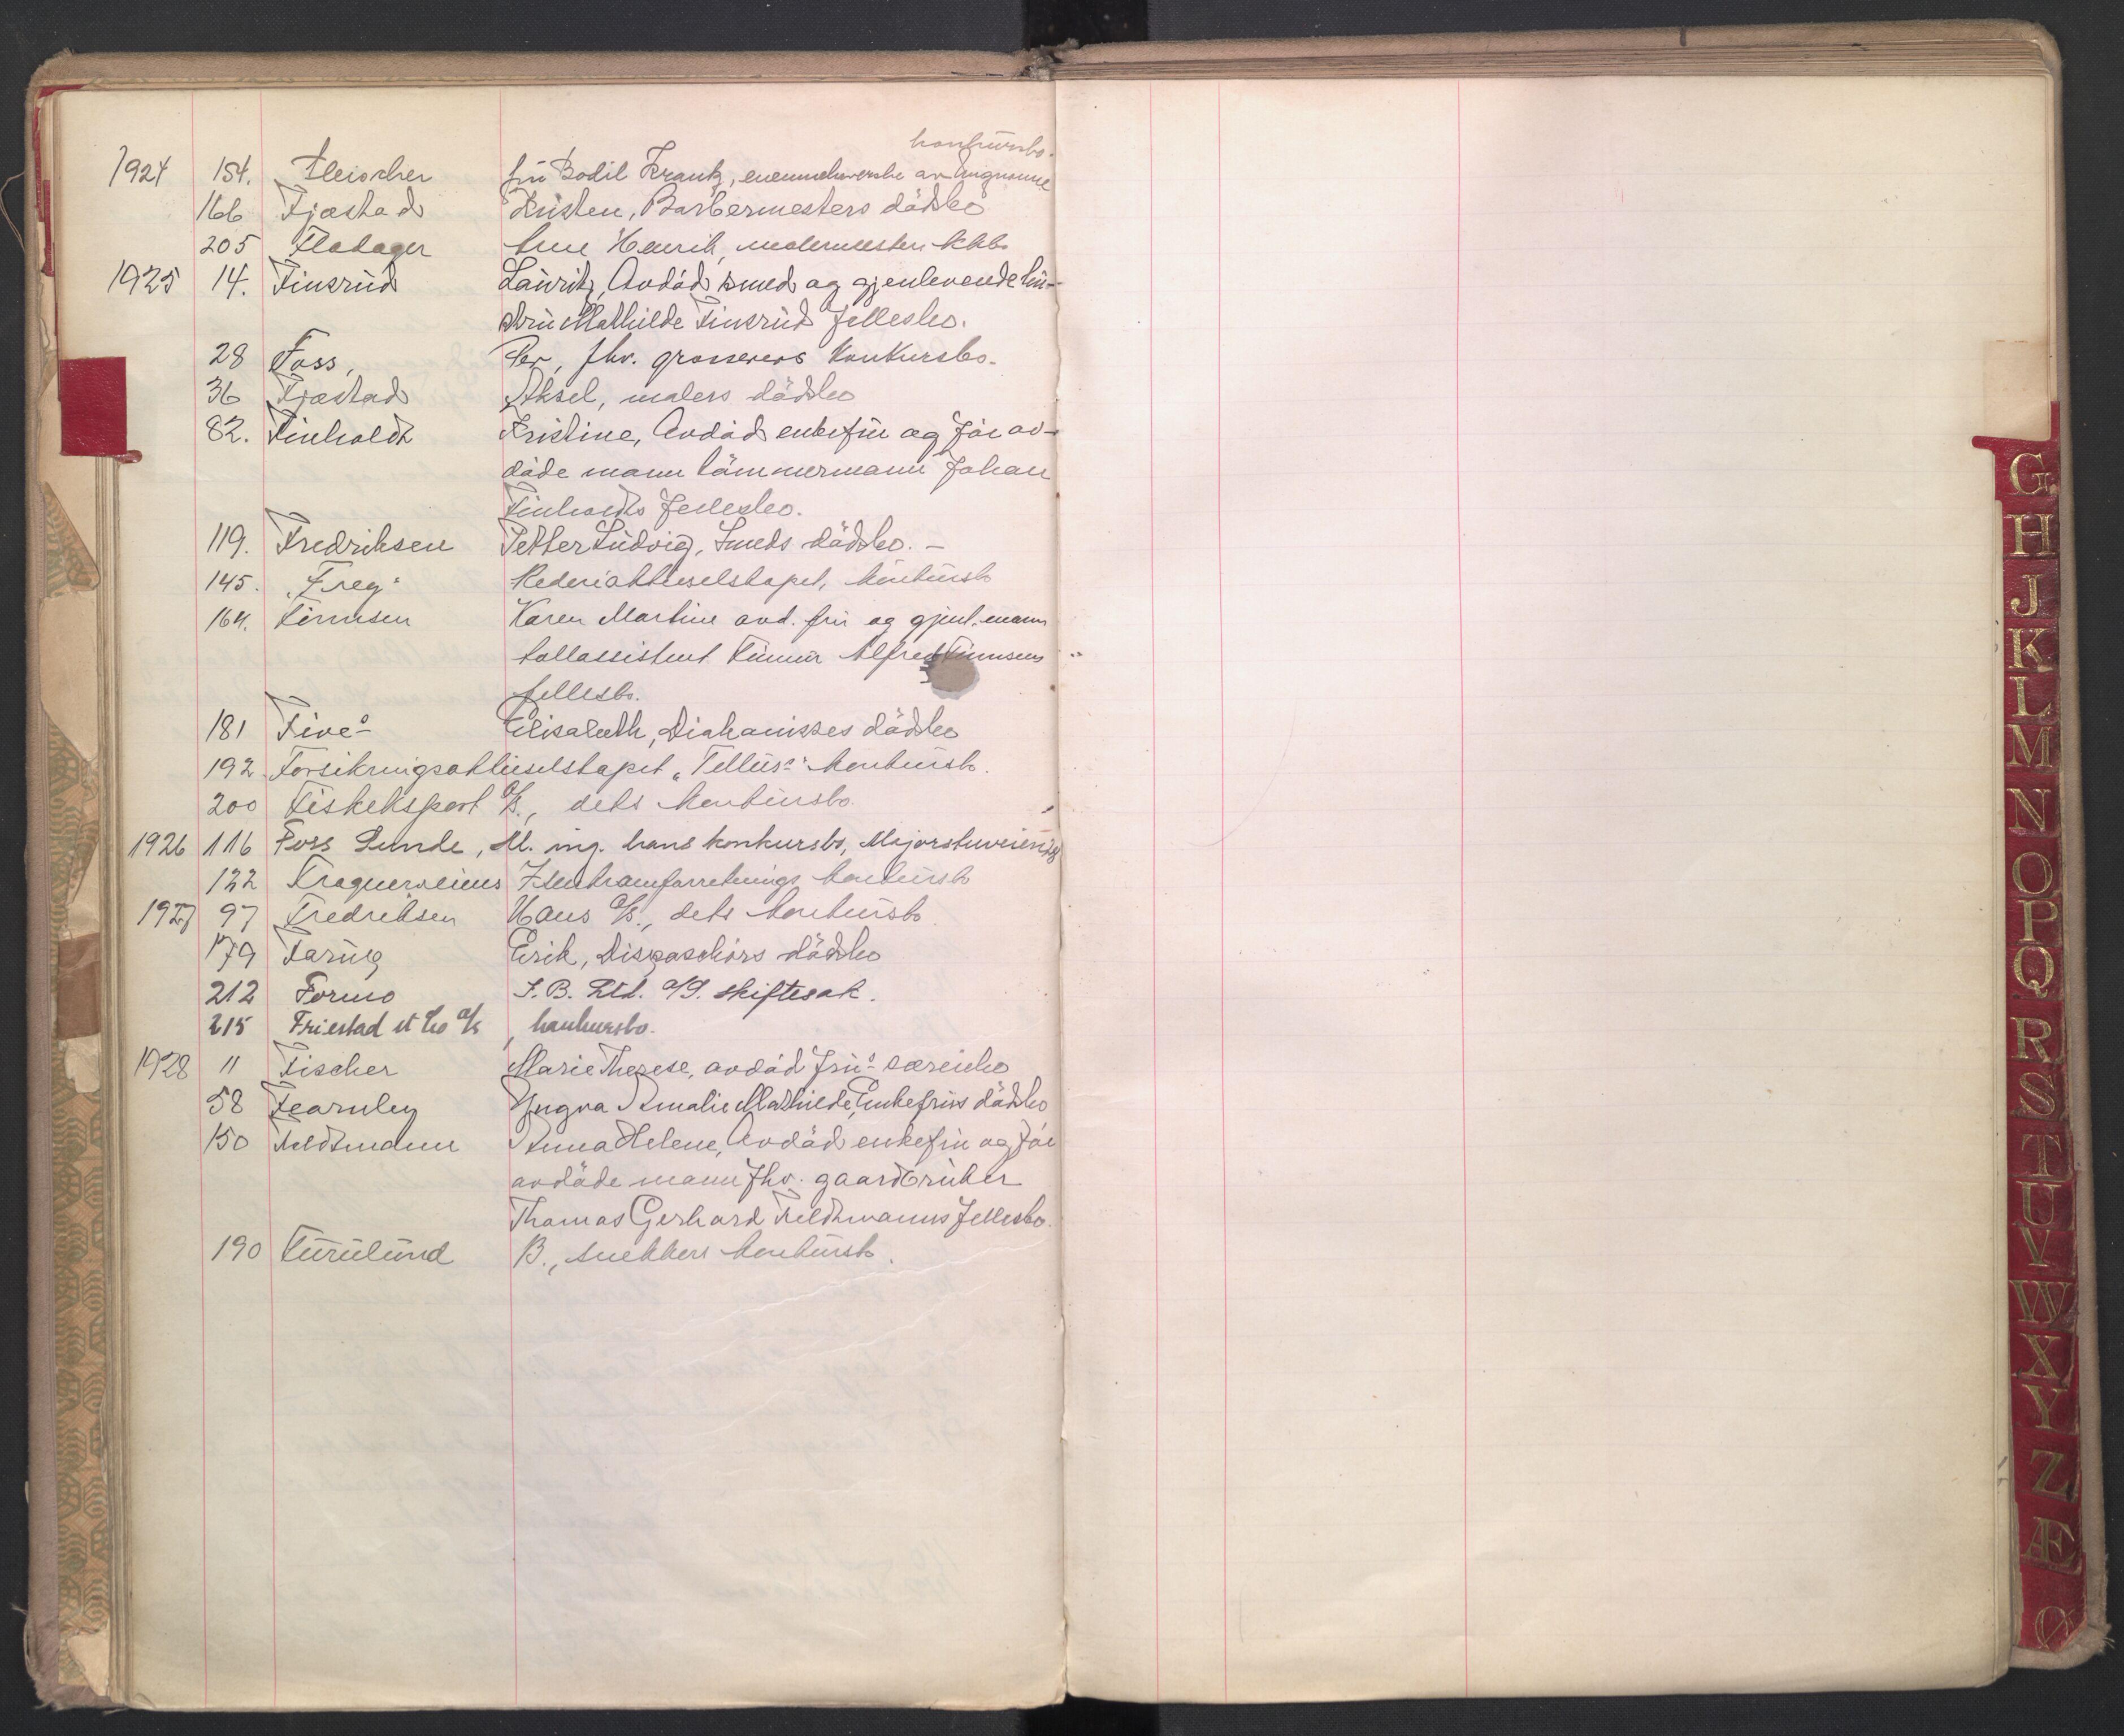 konkursbo.
1924 154. Fleischer fru Bodil Krantz, eneinnehaverske av
166 Fjæstad Kristen, Barbermesters dödsbo
205 Fladager Arne Henrik, malermester kkb
1925 14. Finsrud Lauritz, Avdöd smed og gjenlevende hu-
stru Mathilde Finsrud fellesbo.
28 Foss, Per, fhv. grosserers konkursbo.
36 Fjæstad Aksel, malers dödsbo
82. Finholdt Kristine, Avdöd enkefru og för av-
döde mann tömmermann Johan
Finholdts fellesbo.
119. Fredriksen Petter Ludvig, Smeds dödsbo. -
145. "Freg" Rederiaktieselskapet, konkursb
164. Finnsen Karen Martine avd. fru og gjenl. mann
tollassistent Alfred Finnsens
fellesb.
181 Five Elisabeth, Diakonisses dödsbo
192 Forsikringsaktieselskapet "Tellus" konkursb.
200 Fiskeksport A/S., dets konkursbo.
1926 116 Foss Lunde, M. ing. hans konkursbo, Majorstuveien
122 Fragnerveiens Isenkramforretnings konkursb
1927 97 Fredriksen Hans A/S., dets konkursb
179 Farup Erik, Dispaschörs dödsbo
212 Formo S.B. Ltd. A/S. skiftesak.
215 Friestad et Co A/S, konkursbo.
1928 11 Fischer Marie Therese, avdöd fru's særeiebo
58 Fearnley Yngva Amalie Mathilde, Enkefrus dödsbo
150 Feldtmann Anna Helene, Avdöd enkefru og för
avdöde mann fhv. gaardbruker
Thomas Gerhard Feldtmanns fellesbo.
190 Furulund B., snekkers konkursb.
G
H
J
K
L
M
N
O
P
Q
R
S
T
U
V
W
X
Y
Z
Æ
Ø